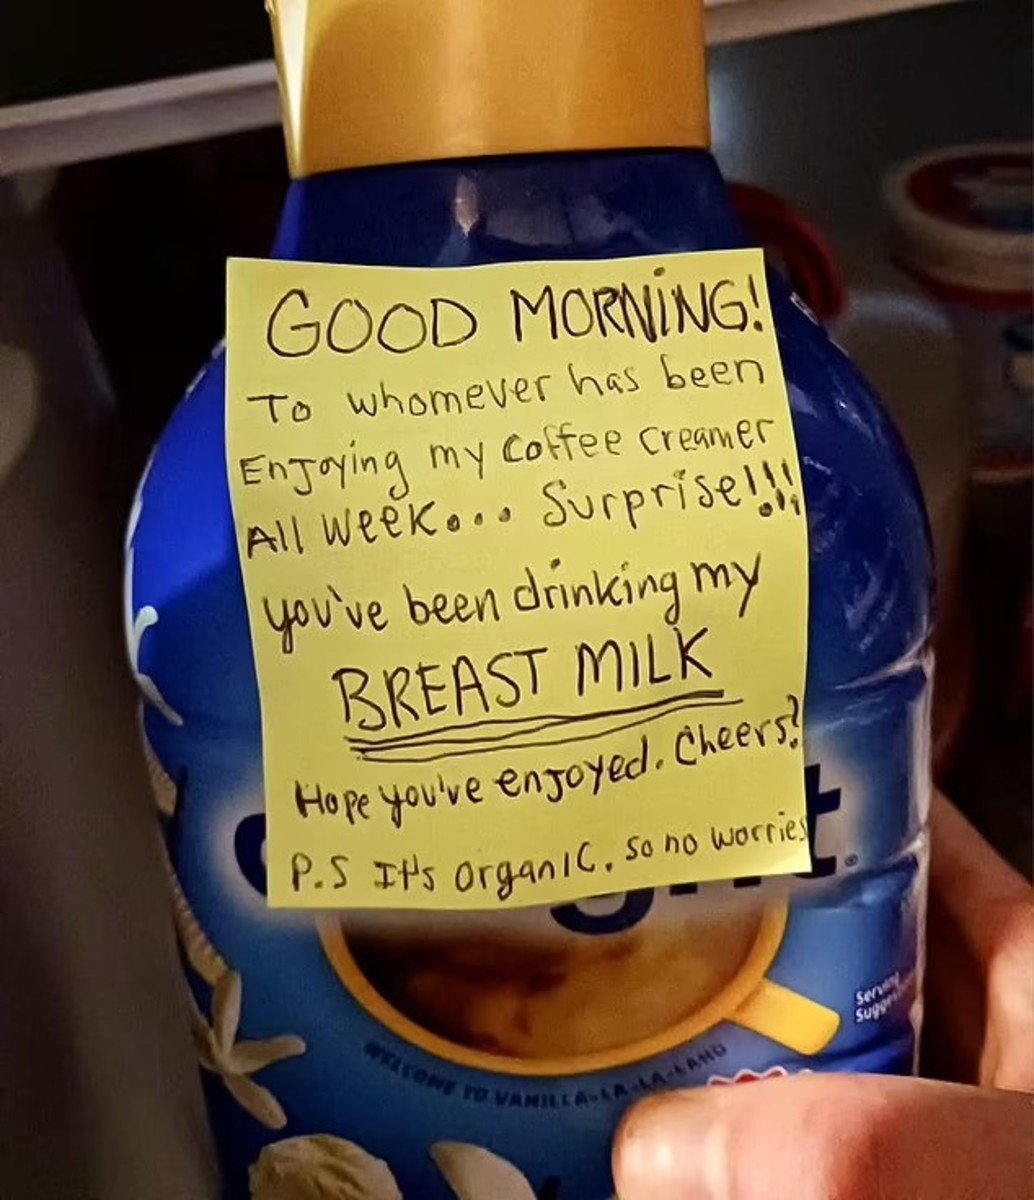 GOOD MORNING!
To whomever has been
Enjoying my coffee creamer
All week... Surprise!!!
you've been drinking my
BREAST MILK
Hope you've enjoyed. Cheers?
P.S It's organic. So no worries
WELCOME TO VANILLA-LA-LA-LAND